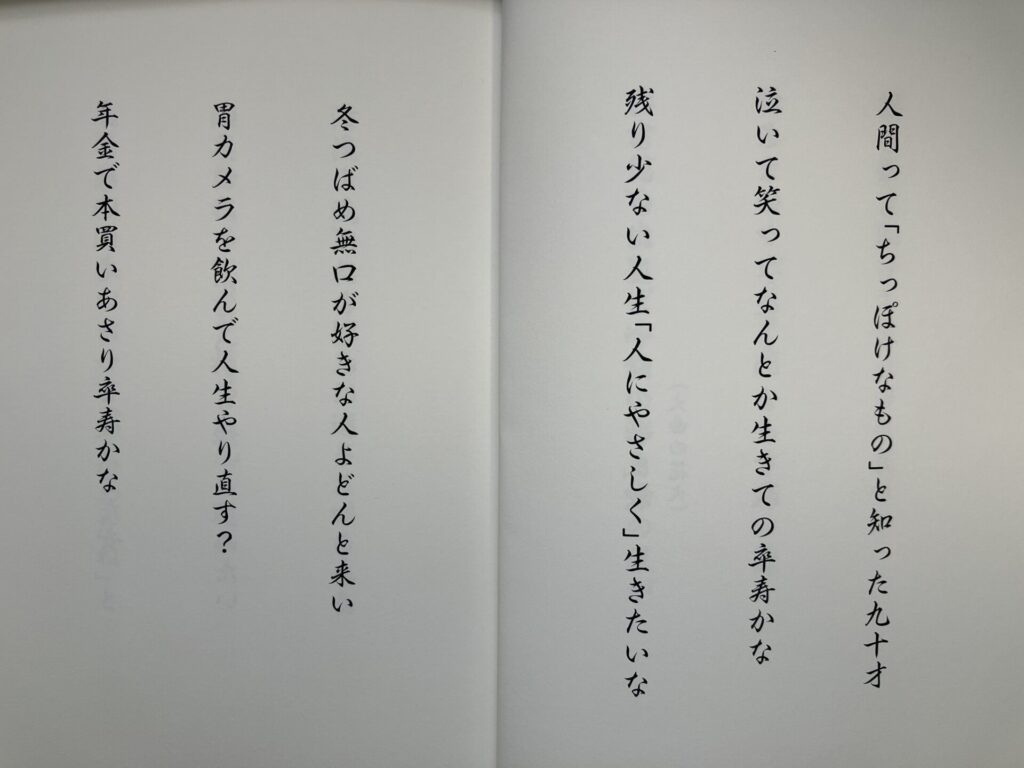 人間って「ちっぽけなもの」と知った九十才
泣いて笑ってなんとか生きての卒寿かな
残り少ない人生「人にやさしく」生きたいな
冬つばめ無口が好きな人よどんと来い
胃カメラを飲んで人生やり直す？
年金で本買いあさり卒寿かな